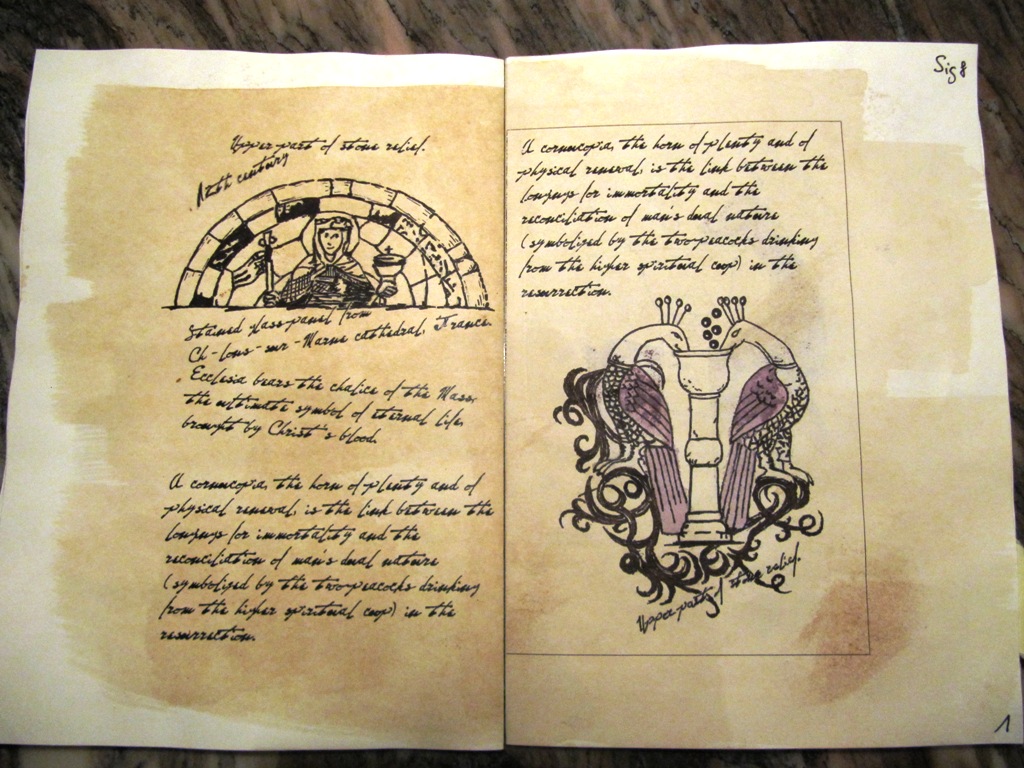 Upper part of stone relief.
12th century
Stained glass panel from
Ch-lons-sur-Marne cathedral, France.
Ecclesia bears the chalice of the Mass,
the ultimate symbol of eternal life,
brought by Christ's blood.
A cornucopia, the horn of plenty and of
physical renewal, is the link between the
longings for immortality and the
reconciliation of man's dual nature
(symbolized by the two peacocks drinking
from the higher spiritual coop) in the
resurrection.
Sig 8
A cornucopia, the horn of plenty and of
physical renewal, is the link between the
longings for immortality and the
reconciliation of man's dual nature
(symbolized by the two peacocks drinking
from the higher spiritual coop) in the
resurrection.
Upper part of stone relief.
1